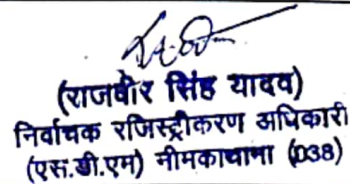 (राजवीर सिंह यादव)
निर्वाचक रजिस्ट्रीकरण अधिकारी
(एस.डी.एम) नीमकाथाना (038)